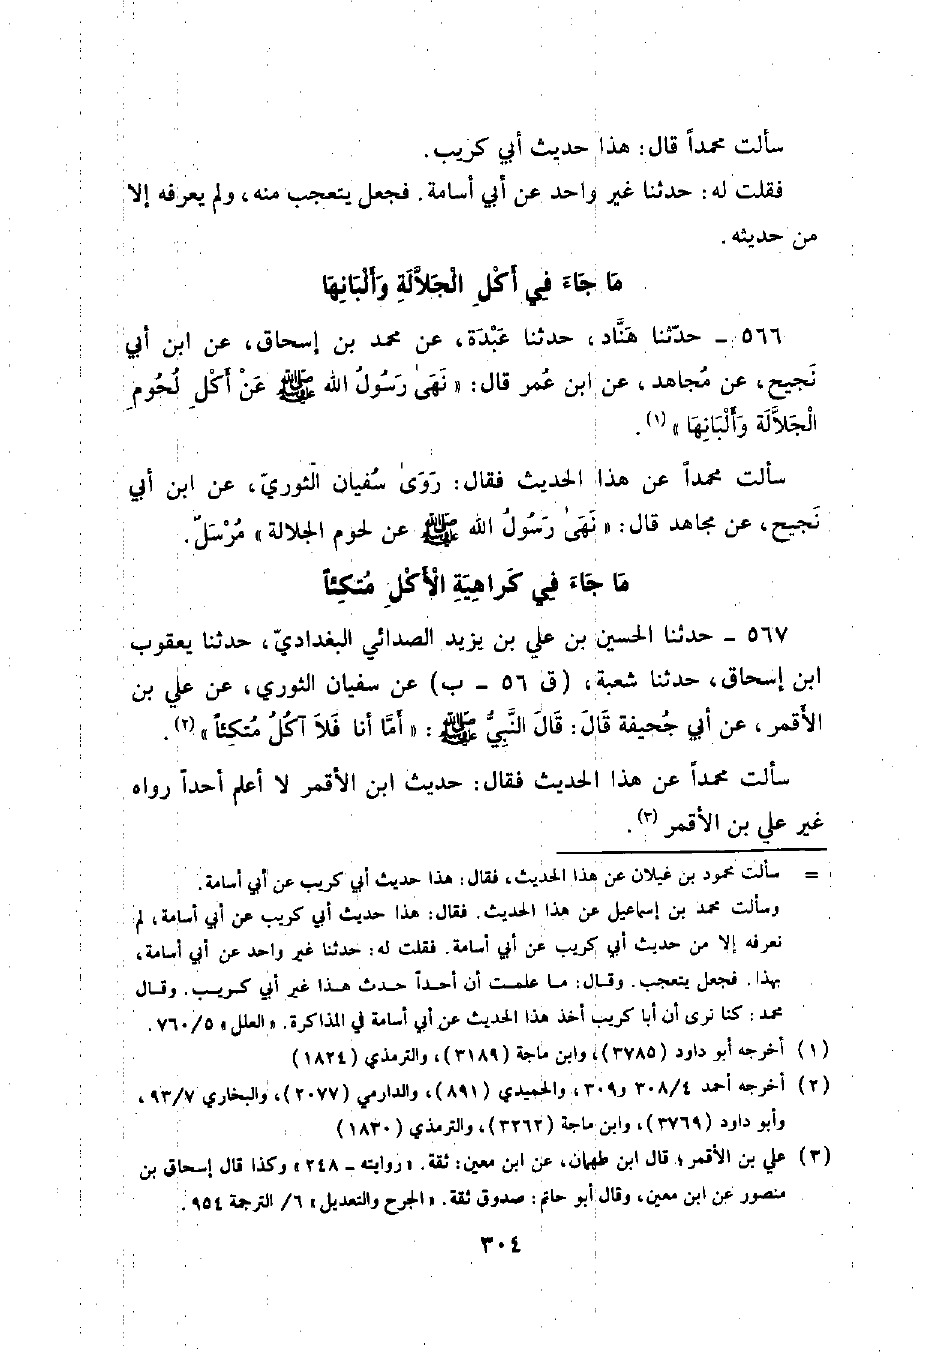 سألت محمداً قال: هذا حديث أبي كريب.
فقلت له: حدثنا غير واحد عن أبي أسامة. فجعل يتعجب منه، ولم يعرفه إلا
من حديثه.
مَا جَاءَ فِي أَكْلِ الْجَلاَّلَةِ وَأَلْبَانِهَا
٥٦٦ ـ حدّثنا هَنَّاد، حدثنا عَبْدَة، عن محمد بن إسحاق، عن ابن أبي
نَجيح، عن مُجاهد، عن ابن عُمر قال: « نَهَىٰ رَسُولُ الله ﷺ عَنْ أَكْلِ لُحُومِ
الْجَلاَّلَة وَأَلْبَانِهَا »(١).
سألت محمداً عن هذا الحديث فقال: رَوَىٰ سُفيان الثوريّ، عن ابن أبي
نَجيح، عن مجاهد قال: « نَهَىٰ رَسُولُ الله ﷺ عن لحوم الجلالة » مُرْسَلٌ.
مَا جَاءَ فِي كَرَاهِيَةِ الْأَكْلِ مُتكِئاً
٥٦٧ ـ حدثنا الحسين بن علي بن يزيد الصدائي البغداديّ، حدثنا يعقوب
ابن إسحاق، حدثنا شعبة، (ق ٥٦ ـ ب) عن سفيان الثوري، عن علي بن
الأَقمر، عن أبي جُحيفة قَالَ: قَالَ النَّبِيُّ ﷺ: « أَمَّا أنا فَلاَ آكُلُ مُتكِئاً »(٢).
سألت محمداً عن هذا الحديث فقال: حديث ابن الأقمر لا أعلم أحداً رواه
غير علي بن الأقمر(٣).
= سألت محمود بن غيلان عن هذا الحديث، فقال: هذا حديث أبي كريب عن أبي أسامة.
وسألت محمد بن إسماعيل عن هذا الحديث. فقال: هذا حديث أبي كريب عن أبي أسامة، لم
نعرفه إلا من حديث أبي كريب عن أبي أسامة. فقلت له: حدثنا غير واحد عن أبي أسامة،
بهذا. فجعل يتعجب. وقال: ما علمت أن أحداً حدث هذا غير أبي كريب. وقال
محمد: كنا نرى أن أبا كريب أخذ هذا الحديث عن أبي أسامة في المذاكرة. « العلل » ٧٦٠/٥.
(١) أخرجه أبو داود (٣٧٨٥)، وابن ماجة (٣١٨٩)، والترمذي (١٨٢٤)
(٢) أخرجه أحمد ٣٠٨/٤ و٣٠٩، والحميدي (٨٩١)، والدارمي (٢٠٧٧)، والبخاري ٩٣/٧،
وأبو داود (٣٧٦٩)، وابن ماجة (٣٢٦٢)، والترمذي (١٨٣٠)
(٣) علي بن الأقمر؛ قال ابن طهمان، عن ابن معين: ثقة. « روايته ـ ٢٤٨ » وكذا قال إسحاق بن
منصور عن ابن معين، وقال أبو حاتم: صدوق ثقة. « الجرح والتعديل » ٦/ الترجمة ٩٥٤.
٣٠٤